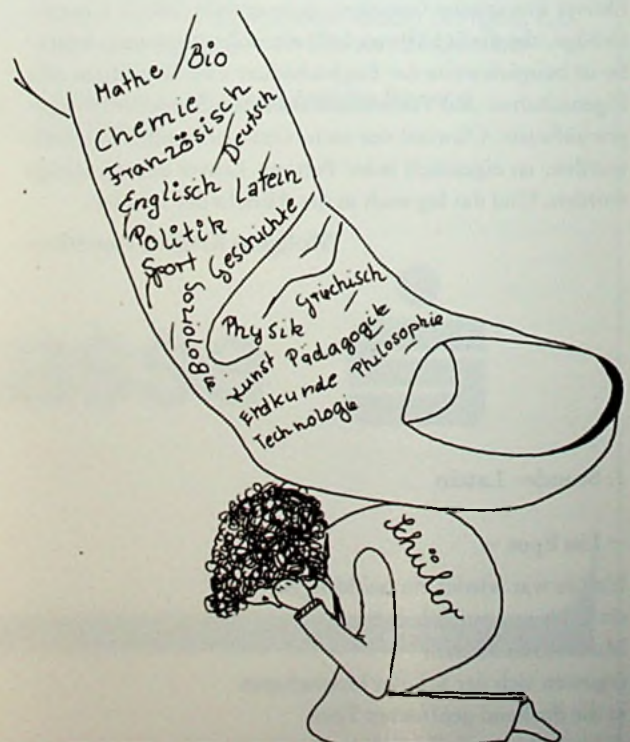 Mathe / Bio
Chemie
Französisch / Deutsch
Englisch / Latein
Politik
Sport Geschichte
Soziologie
Physik Griechisch
Kunst Pädagogik
Erdkunde Philosophie
Technologie
Schüler